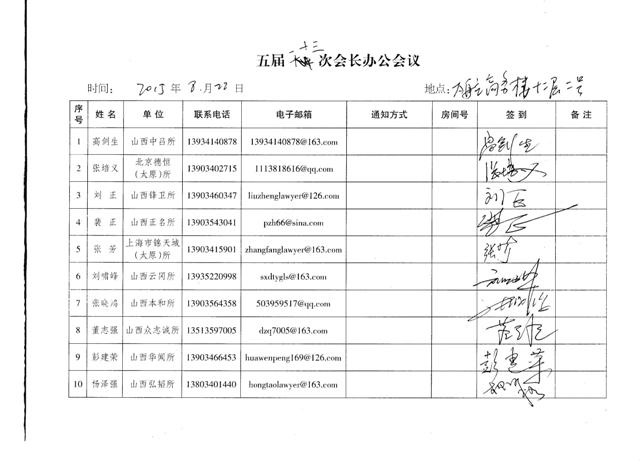 五届 十三 次会长办公会议
时间: 2013年8.22日 地点: 商务楼十二层二号
序号 姓名 单位 联系电话 电子邮箱 通知方式 房间号 签到 备注
1 高剑生 山西中吕所 13934140878 13934140878@163.com 高剑生
2 张培义 北京德恒(太原)所 13903402715 1113818616@qq.com 张培义
3 刘正 山西锋卫所 13903460347 liuzhenglawyer@126.com 刘正
4 裴正 山西正名所 13903543041 pzh66@sina.com 裴正
5 张芳 上海市锦天城(太原)所 13903415901 zhangfanglawyer@163.com 张芳
6 刘啸峰 山西云冈所 13935220998 sxdtygls@163.com
7 张晓鸿 山西本和所 13903564358 503959517@qq.com
8 董志强 山西众志诚所 13513597005 dzq7005@163.com
9 彭建荣 山西华闻所 13903466453 huawenpeng169@126.com 彭建荣
10 杨泽强 山西弘韬所 13803401440 hongtaolawyer@163.com